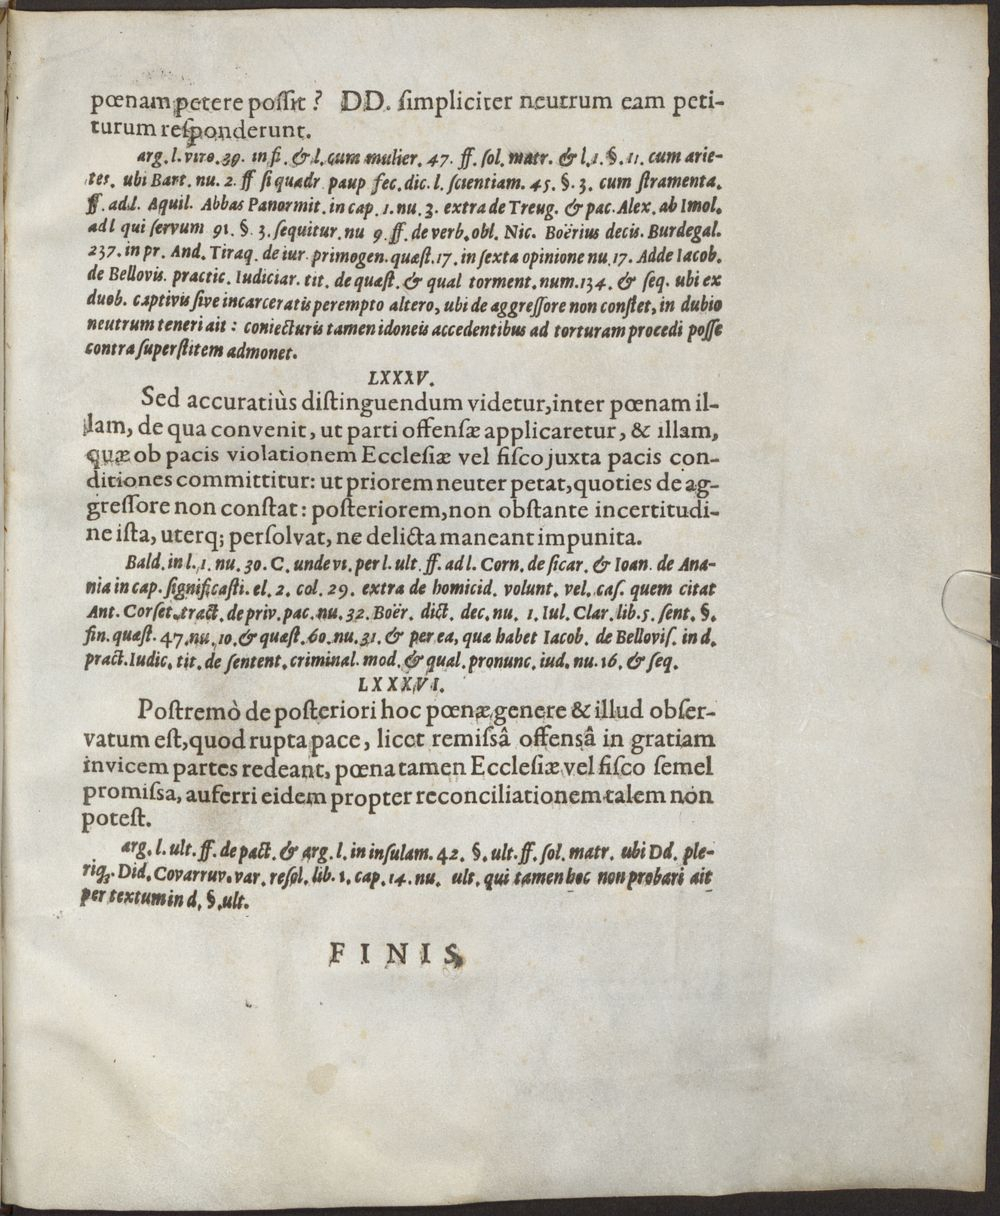 pœnam petere possit? DD. simpliciter neutrum eam peti-
turum responderunt.
arg. l. viro. 39. in fi. & l. cum mulier. 47. ff. sol. matr. & l. 1. §. 11. cum arie-
tes. ubi Bart. nu. 2. ff si quadr paup fec. dic. l. scientiam. 45. §. 3. cum stramenta.
ff. ad. l. Aquil. Abbas Panormit. in cap. 1. nu. 3. extra de Treug. & pac. Alex. ab Imol.
ad l qui servum 91. §. 3. sequitur. nu 9. ff. de verb. obl. Nic. Boërius decis. Burdegal.
237. in pr. And. Tiraq. de iur. primogen. quæst. 17. in sexta opinione nu. 17. Adde Iacob.
de Bellovis. practic. Iudiciar. tit. de quæst. & qual torment. num. 134. & seq. ubi ex
duob. captivis sive incarceratis perempto altero, ubi de aggressore non constet, in dubio
neutrum teneri ait: coniecturis tamen idoneis accedentibus ad torturam procedi posse
contra superstitem admonet.
LXXXV.
Sed accuratiùs distinguendum videtur, inter pœnam il-
lam, de qua convenit, ut parti offensæ applicaretur, & illam,
quæ ob pacis violationem Ecclesiæ vel fisco juxta pacis con-
ditiones committitur: ut priorem neuter petat, quoties de ag-
gressore non constat: posteriorem, non obstante incertitudi-
ne ista, uterq; persolvat, ne delicta maneant impunita.
Bald. in l. 1. nu. 30. C. unde vi. per l. ult. ff. ad l. Corn. de sicar. & Ioan. de Ana-
nia in cap. significasti. el. 2. col. 29. extra de homicid. volunt. vel. cas. quem citat
Ant. Corset. tract. de priv. pac. nu. 32. Boër. dict. dec. nu. 1. Iul. Clar. lib. 5. sent. §.
fin. quæst. 47. nu. 10. & quæst. 60. nu. 31. & per ea, quæ habet Iacob. de Bellovis. in d.
pract. Iudic. tit. de sentent. criminal. mod. & qual. pronunc. iud. nu. 16. & seq.
LXXXVI.
Postremò de posteriori hoc pœnæ genere & illud obser-
vatum est, quod rupta pace, licet remissâ offensâ in gratiam
invicem partes redeant, pœna tamen Ecclesiæ vel fisco semel
promissa, auferri eidem propter reconciliationem talem non
potest.
arg. l. ult. ff. de pact. & arg. l. in insulam. 42. §. ult. ff. sol. matr. ubi Dd. ple-
riq;. Did. Covarruv. var. resol. lib. 1. cap. 14. nu. ult. qui tamen hoc non probari ait
per textum in d. §. ult.
FINIS